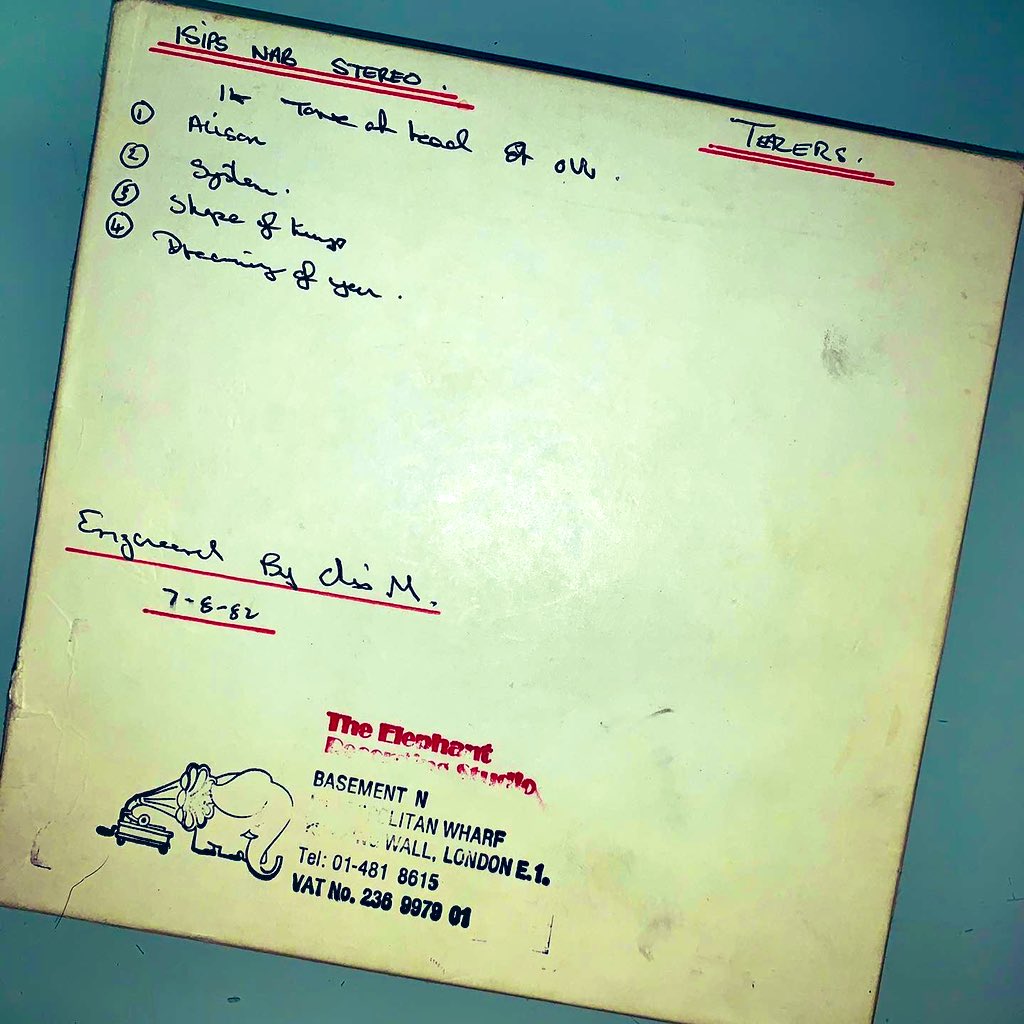 15IPS NAB STEREO.
TERERS.
1K Tone at head at OVU.
① Alison
② System.
③ Shape of
④ Dreaming of you.
Engineered By Chris M.
7-8-82
The Elephant
Recording Studio
BASEMENT N
LITAN WHARF
WALL, LONDON E.1.
Tel: 01-481 8615
VAT No. 236 9979 01